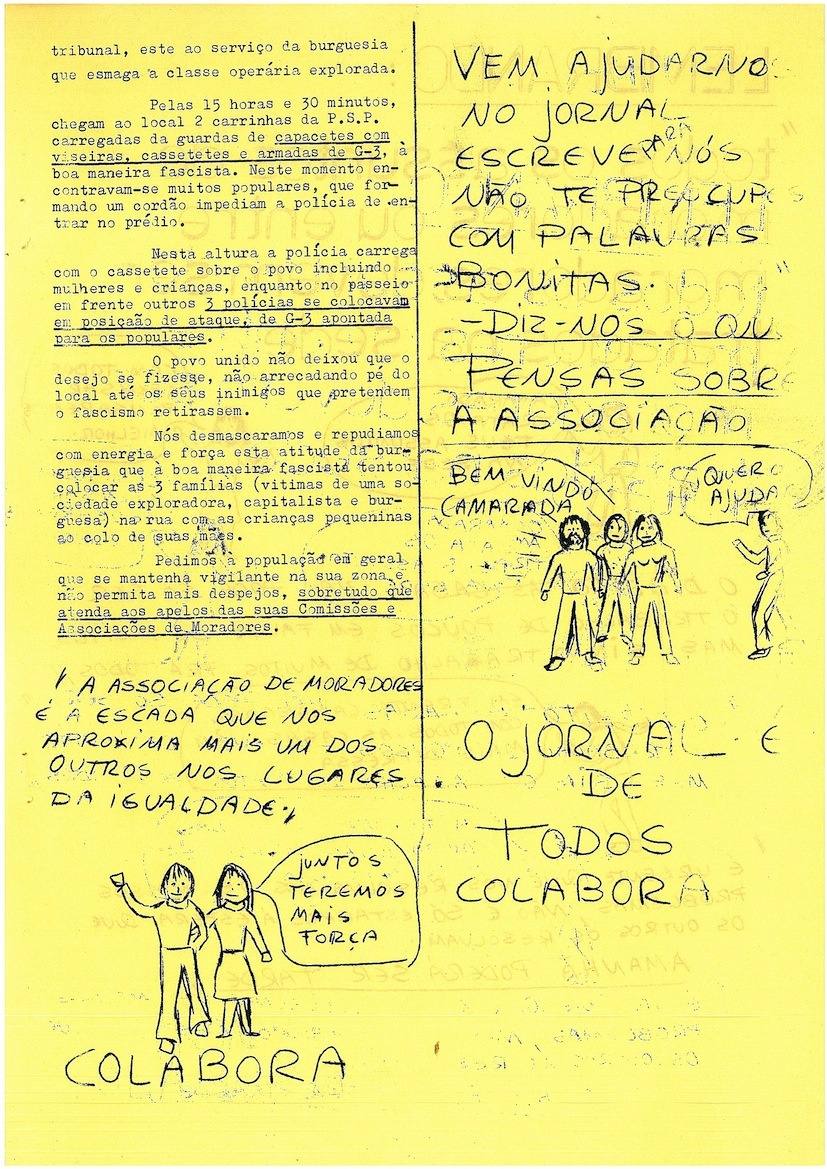 tribunal, este ao serviço da burguesia
que esmaga a classe operária explorada.
Pelas 15 horas e 30 minutos,
chegam ao local 2 carrinhas da P.S.P.
carregadas da guardas de capacetes com
viseiras, cassetetes e armadas de G-3, à
boa maneira fascista. Neste momento en-
contravam-se muitos populares, que for-
mando um cordão impediam a polícia de en-
trar no prédio.
Nesta altura a polícia carrega
com o cassetete sobre o povo incluindo
mulheres e crianças, enquanto no passeio
em frente outros 3 polícias se colocavam
em posiçãao de ataque, de G-3 apontada
para os populares.
O povo unido não deixou que o
desejo se fizesse, não arrecadando pé do
local até os seus inimigos que pretendem
o fascismo retirassem.
Nós desmascaramos e repudiamos
com energia e força esta atitude da bur-
guesia que à boa maneira fascista tentou
colocar as 3 famílias (vitimas de uma so-
ciedade exploradora, capitalista e bur-
guesa) na rua com as crianças pequeninas
ao colo de suas mães.
Pedimos à população em geral
que se mantenha vigilante na sua zona e
não permita mais despejos, sobretudo que
atenda aos apelos das suas Comissões e
Associações de Moradores.
A ASSOCIAÇÃO DE MORADORES
É A ESCADA QUE NOS
APROXIMA MAIS UM DOS
OUTROS NOS LUGARES
DA IGUALDADE.
JUNTOS
TEREMOS
MAIS
FORÇA
COLABORA
VEM AJUDARNOS
NO JORNAL
ESCREVE PARA NÓS
NÃO TE PREOCUPES
COM PALAVRAS
BONITAS.
-DIZ-NOS O QU
PENSAS SOBRE
A ASSOCIAÇÃO
BEM VINDO
CAMARADA
QUERO
AJUDA
O JORNAL E
DE
TODOS
COLABORA